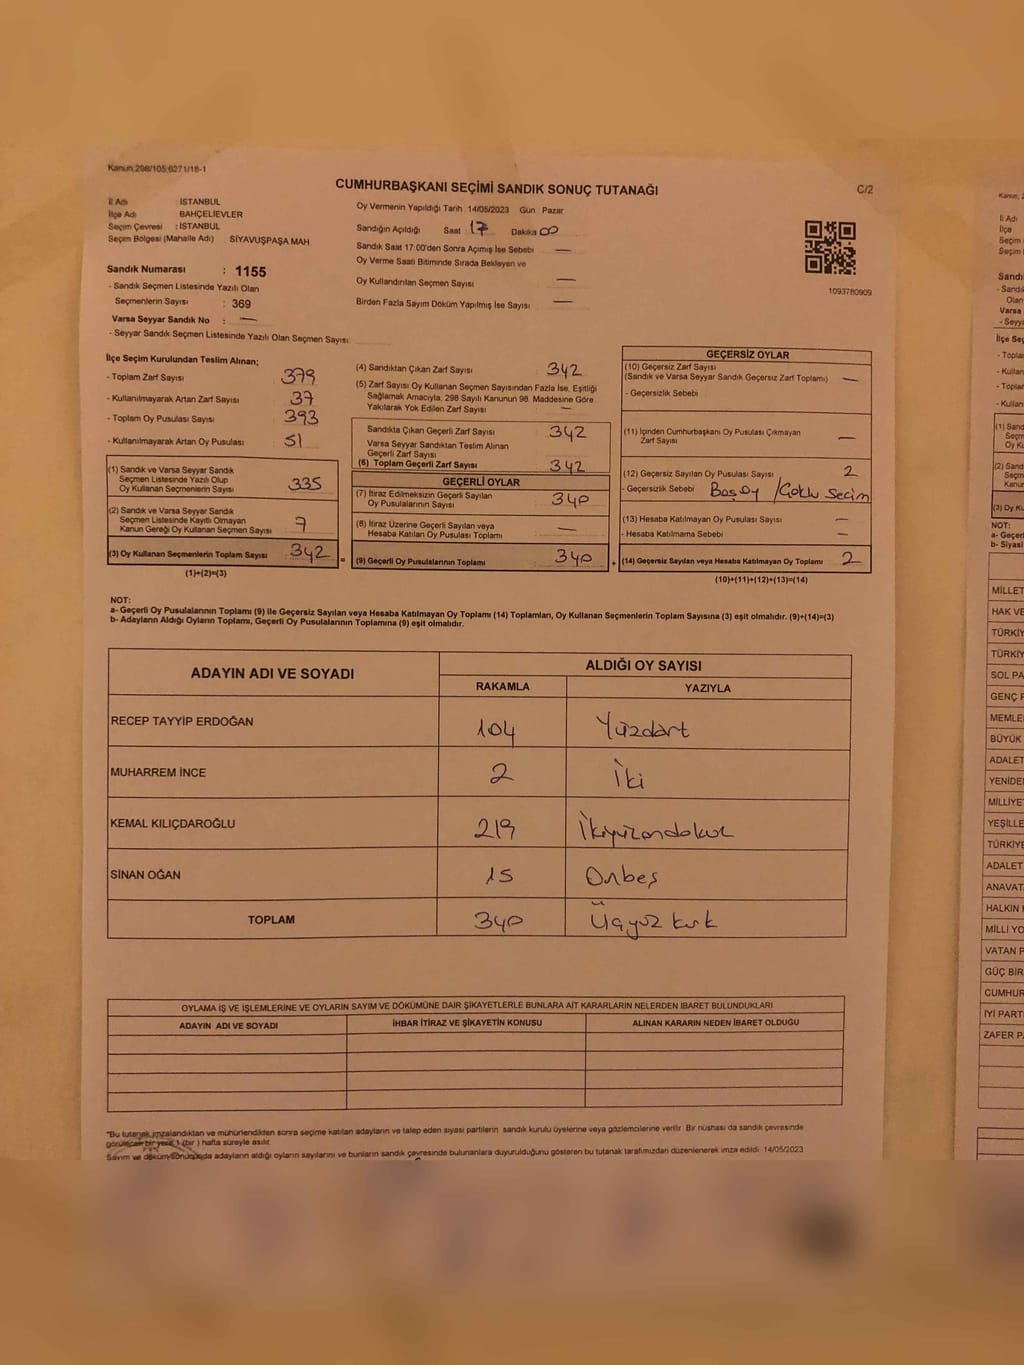 Kanun 298/105:6271/18-1
CUMHURBAŞKANI SEÇİMİ SANDIK SONUÇ TUTANAĞI
C/2
İl Adı : İSTANBUL
İlçe Adı : BAHÇELİEVLER
Seçim Çevresi : İSTANBUL
Seçim Bölgesi (Mahalle Adı) SİYAVUŞPAŞA MAH.
Sandık Numarası : 1155
- Sandık Seçmen Listesinde Yazılı Olan
Seçmenlerin Sayısı : 369
Varsa Seyyar Sandık No : —
- Seyyar Sandık Seçmen Listesinde Yazılı Olan Seçmen Sayısı
Oy Vermenin Yapıldığı Tarih 14/05/2023 Gün Pazar
Sandığın Açıldığı Saat 17 Dakika 00
Sandık Saat 17:00'den Sonra Açılmış İse Sebebi —
Oy Verme Saati Bitiminde Sırada Bekleyen ve
Oy Kullandırılan Seçmen Sayısı —
Birden Fazla Sayım Döküm Yapılmış İse Sayısı —
1093780909
İlçe Seçim Kurulundan Teslim Alınan;
- Toplam Zarf Sayısı 379
- Kullanılmayarak Artan Zarf Sayısı 37
- Toplam Oy Pusulası Sayısı 393
- Kullanılmayarak Artan Oy Pusulası 51
(1) Sandık ve Varsa Seyyar Sandık
Seçmen Listesinde Yazılı Olup
Oy Kullanan Seçmenlerin Sayısı 335
(2) Sandık ve Varsa Seyyar Sandık
Seçmen Listesinde Kayıtlı Olmayan
Kanun Gereği Oy Kullanan Seçmen Sayısı 7
(3) Oy Kullanan Seçmenlerin Toplam Sayısı 342
(1)+(2)=(3)
(4) Sandıktan Çıkan Zarf Sayısı 342
(5) Zarf Sayısı Oy Kullanan Seçmen Sayısından Fazla İse, Eşitliği
Sağlamak Amacıyla, 298 Sayılı Kanunun 98. Maddesine Göre
Yakılarak Yok Edilen Zarf Sayısı —
Sandıkta Çıkan Geçerli Zarf Sayısı 342
Varsa Seyyar Sandıktan Teslim Alınan
Geçerli Zarf Sayısı
(6) Toplam Geçerli Zarf Sayısı 342
GEÇERLİ OYLAR
(7) İtiraz Edilmeksizin Geçerli Sayılan
Oy Pusulalarının Sayısı 340
(8) İtiraz Üzerine Geçerli Sayılan veya
Hesaba Katılan Oy Pusulası Toplamı —
(9) Geçerli Oy Pusulalarının Toplamı 340
GEÇERSİZ OYLAR
(10) Geçersiz Zarf Sayısı
(Sandık ve Varsa Seyyar Sandık Geçersiz Zarf Toplamı) —
- Geçersizlik Sebebi
(11) İçinden Cumhurbaşkanı Oy Pusulası Çıkmayan
Zarf Sayısı —
(12) Geçersiz Sayılan Oy Pusulası Sayısı 2
- Geçersizlik Sebebi Boş oy / Çoklu Seçim
(13) Hesaba Katılmayan Oy Pusulası Sayısı —
- Hesaba Katılmama Sebebi —
(14) Geçersiz Sayılan veya Hesaba Katılmayan Oy Toplamı 2
(10)+(11)+(12)+(13)=(14)
NOT:
a- Geçerli Oy Pusulalarının Toplamı (9) ile Geçersiz Sayılan veya Hesaba Katılmayan Oy Toplamı (14) Toplamları, Oy Kullanan Seçmenlerin Toplam Sayısına (3) eşit olmalıdır. (9)+(14)=(3)
b- Adayların Aldığı Oyların Toplamı, Geçerli Oy Pusulalarının Toplamına (9) eşit olmalıdır.
ADAYIN ADI VE SOYADI
ALDIĞI OY SAYISI
RAKAMLA YAZIYLA
RECEP TAYYİP ERDOĞAN 104 Yüzdört
MUHARREM İNCE 2 İki
KEMAL KILIÇDAROĞLU 219 İkiyüzondokuz
SİNAN OĞAN 15 Onbeş
TOPLAM 340 Üçyüz kırk
OYLAMA İŞ VE İŞLEMLERİNE VE OYLARIN SAYIM VE DÖKÜMÜNE DAİR ŞİKAYETLERLE BUNLARA AİT KARARLARIN NELERDEN İBARET BULUNDUKLARI
ADAYIN ADI VE SOYADI İHBAR İTİRAZ VE ŞİKAYETİN KONUSU ALINAN KARARIN NEDEN İBARET OLDUĞU
*Bu tutanak imzalandıktan ve mühürlendikten sonra seçime katılan adayların ve talep eden siyasi partilerin sandık kurulu üyelerine veya gözlemcilerine verilir. Bir nüshası da sandık çevresinde
görülecek bir yere 1 (bir) hafta süreyle asılır.
Sayım ve döküm sonucunda adayların aldığı oyların sayılarını ve bunların sandık çevresinde bulunanlara duyurulduğunu gösteren bu tutanak tarafımızdan düzenlenerek imza edildi. 14/05/2023
Kanun
İl Adı
İlçe
Seçim
Seçim
Sandı
- Sandı
Olan
Varsa
- Seyy
İlçe Seç
- Topla
- Kullan
- Topla
- Kullan
(1) Sand
Seçm
Oy K
(2) Sand
Seçm
Kanun
(3) Oy K
NOT:
a- Geçer
b- Siyasi
MİLLET
HAK VE
TÜRKİY
TÜRKİY
SOL PA
GENÇ P
MEMLE
BÜYÜK
ADALET
YENİDE
MİLLİYE
YEŞİLLE
TÜRKİYE
ADALET
ANAVAT
HALKIN
MİLLİ YO
VATAN P
GÜÇ BİR
CUMHUR
İYİ PARTİ
ZAFER P